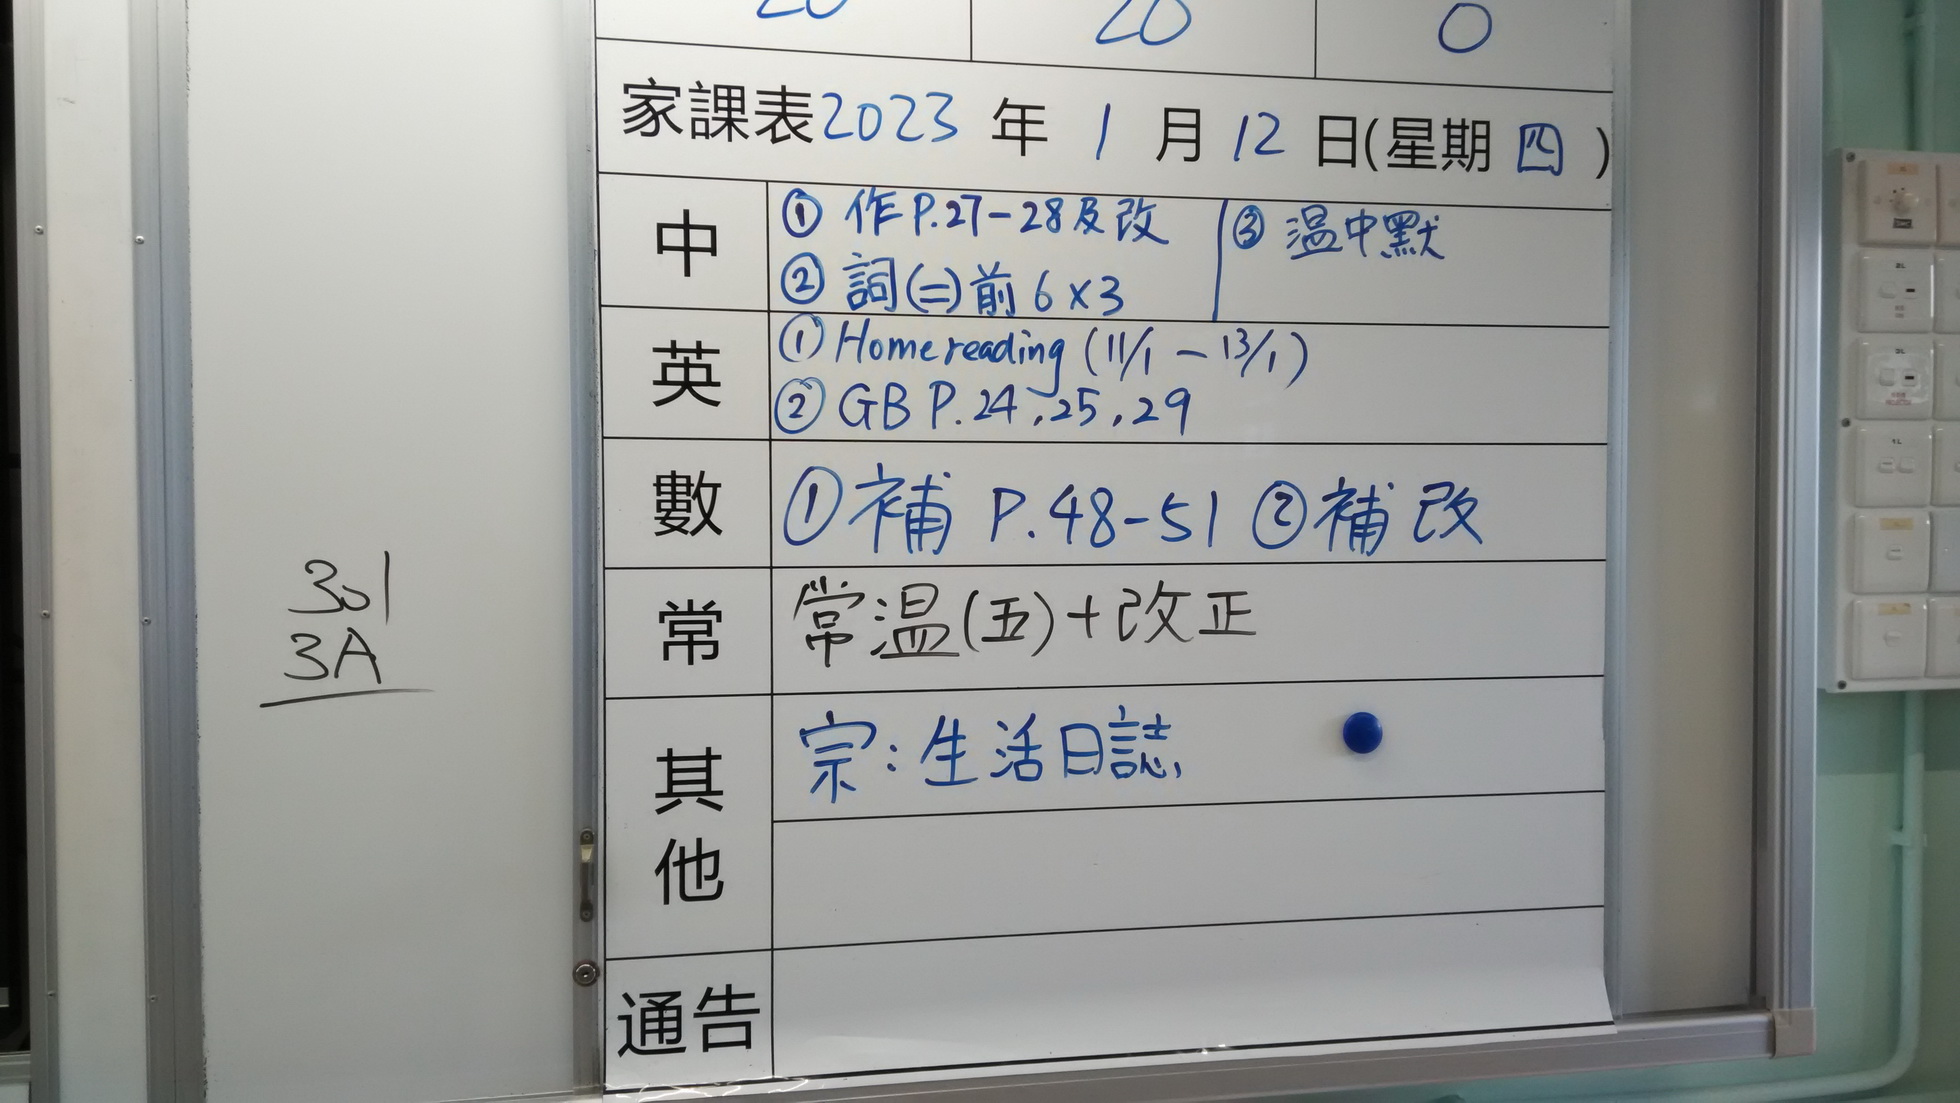 20 20 0
家課表2023年1月12日(星期四)
中
① 作P.27-28及改
② 詞(二)前6×3
③ 温中默
英
① Home reading (11/1 - 13/1)
② GB P.24,25,29
數
① 補 P.48-51 ② 補改
常
常温(五)+改正
其他
宗:生活日誌
通告
301
3A